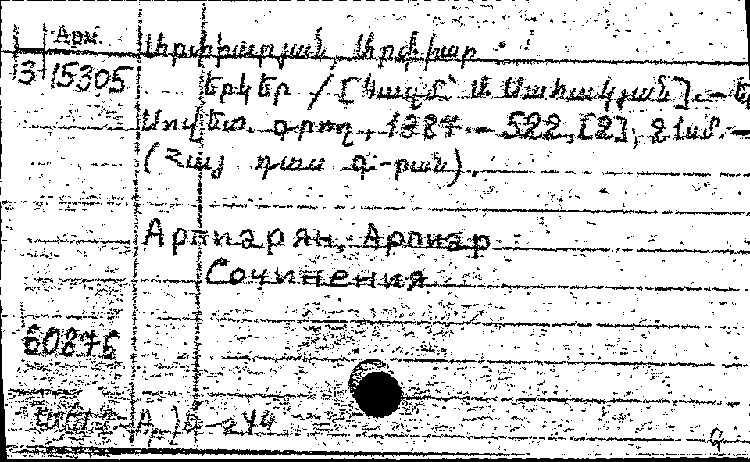 Арм.
3 15305
Արփիարյան, Արփիար
Երկեր / [Կազմ՝ Ս. Սահակյան]. — Ե
Սովետ. գրող, 1987. — 522, [2],
(Հայ դաս. գ-րան).
Арпиарян, Арпиар
Сочинения
60876